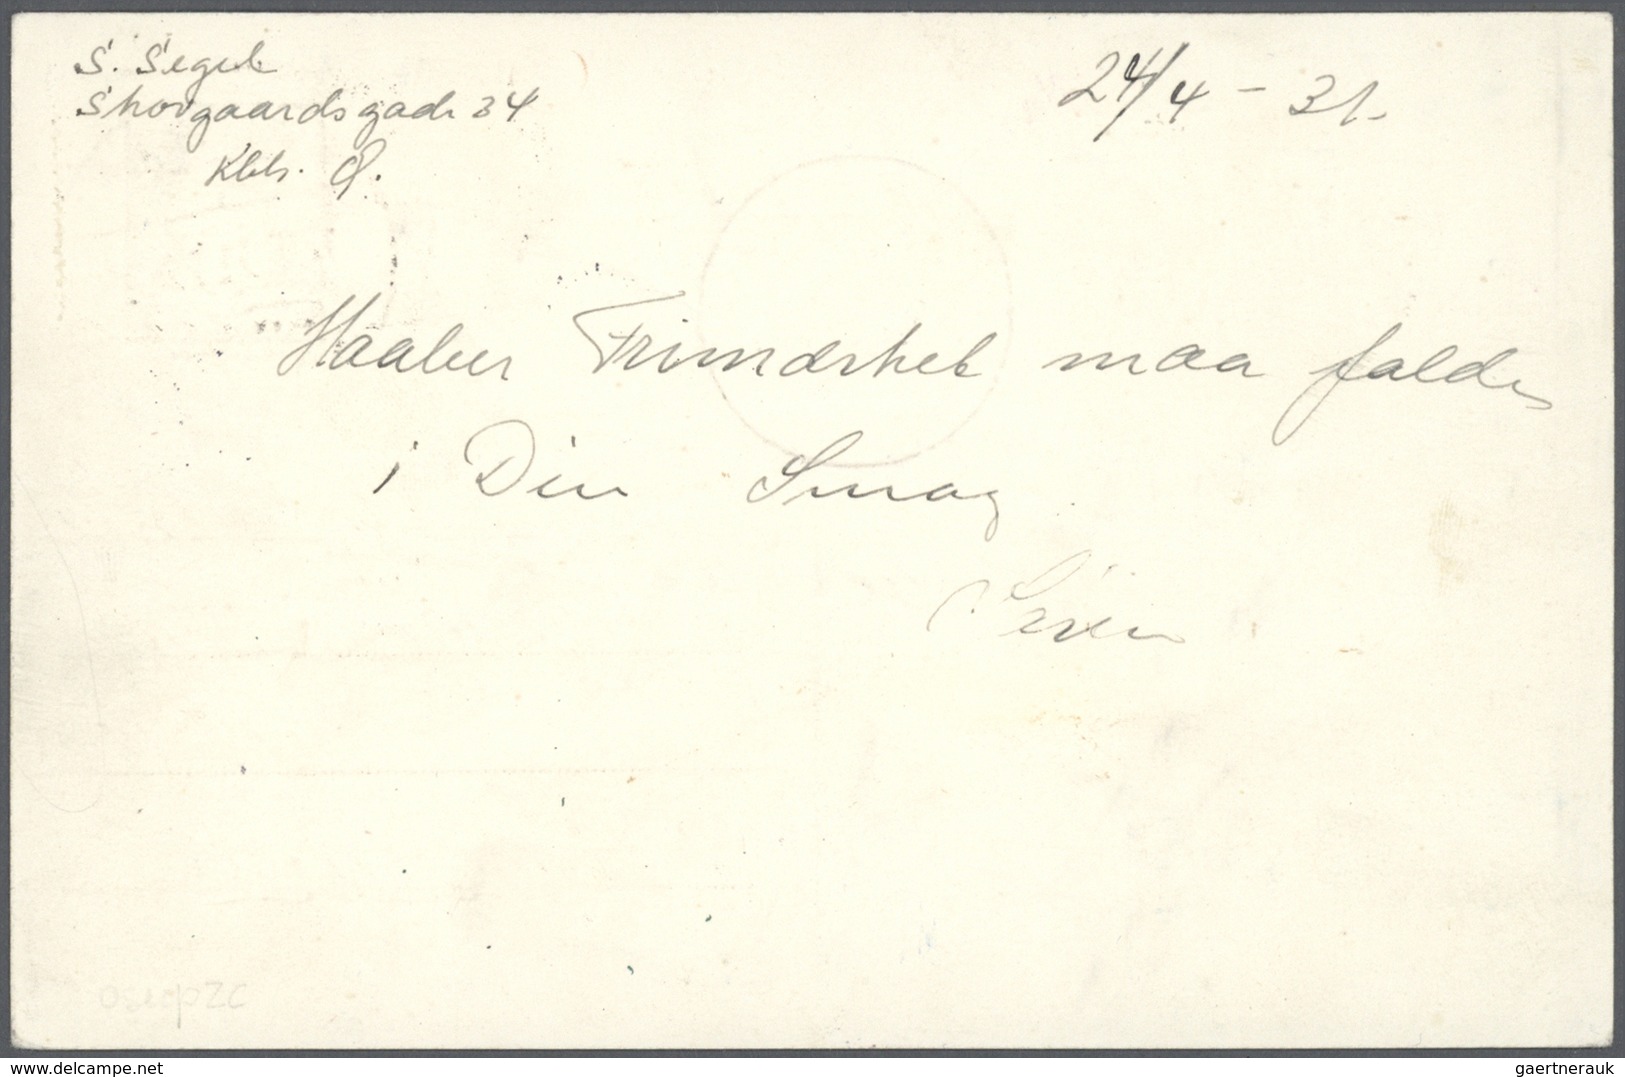 S. Segel
Skovgaardsgade 34
Kbh. Ø.
24/4 - 31.
Haaber Frimærket maa falde
i Din Smag
delcampe.net
gaertnerauk